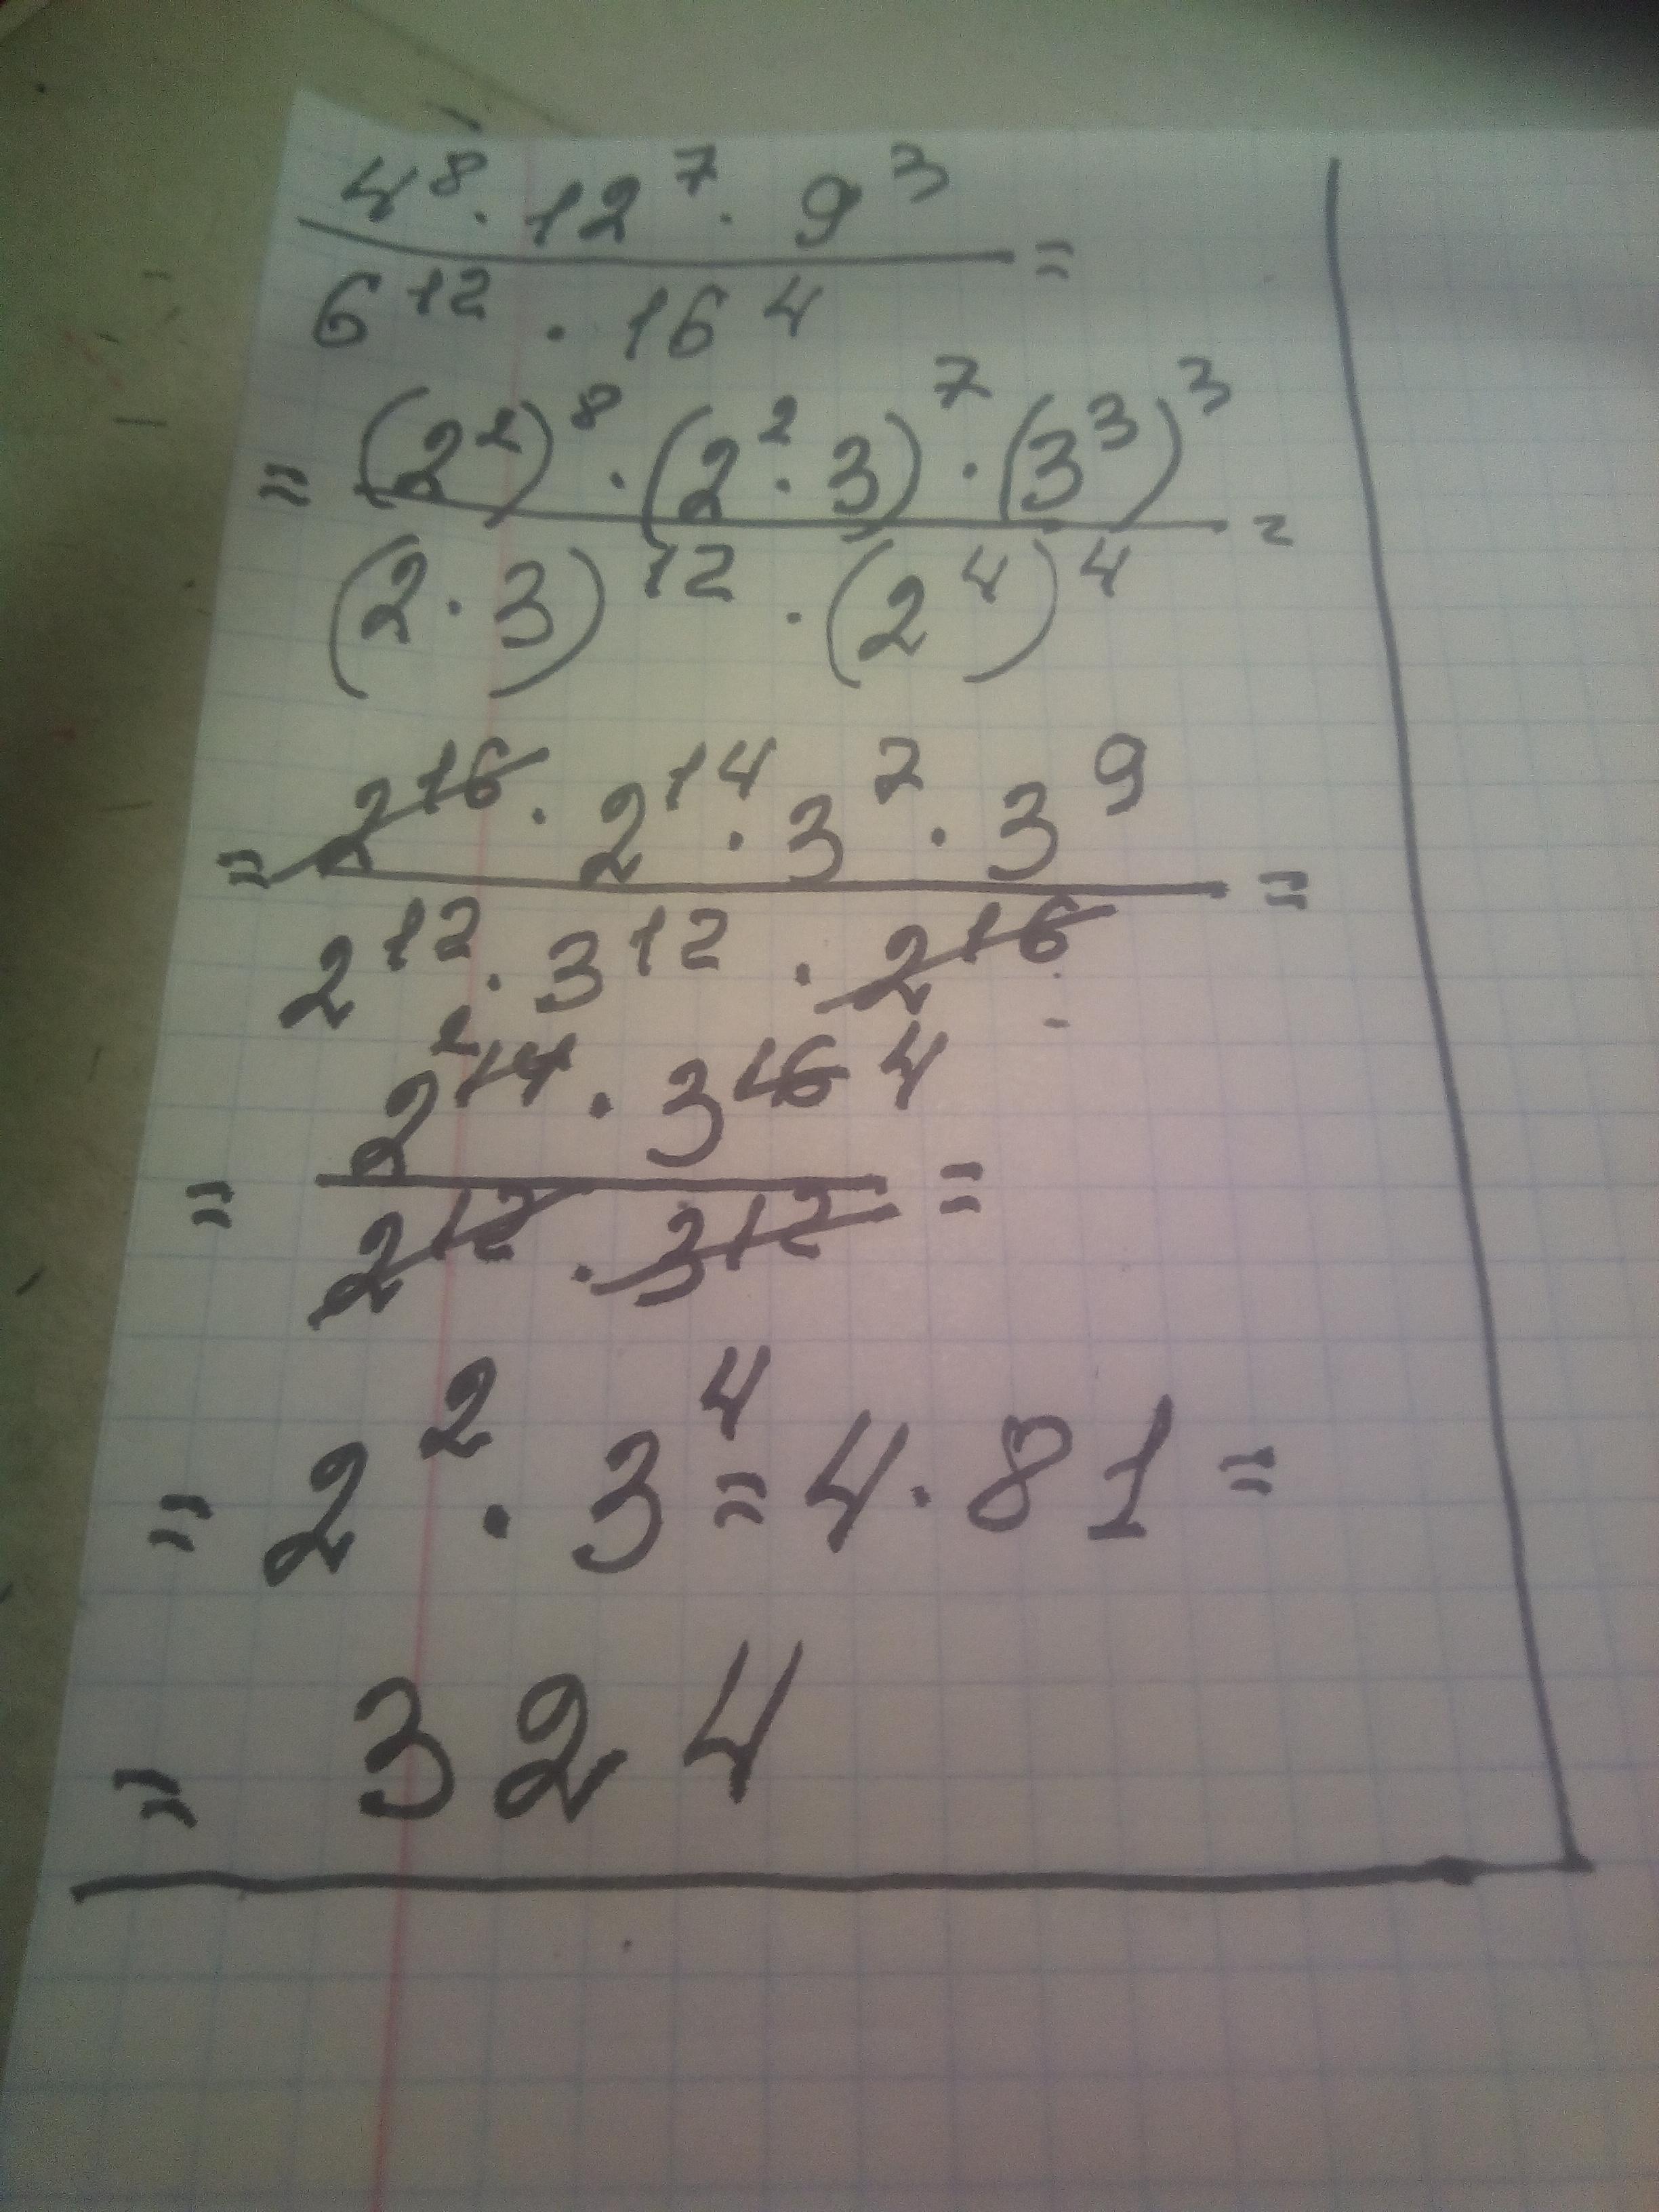 4⁸ · 12⁷ · 9³ =
6¹² · 16⁴
= (2²)⁸ · (2² · 3)⁷ · (3³)³ =
(2 · 3)¹² · (2⁴)⁴
= 2¹⁶ · 2¹⁴ · 3⁷ · 3⁹ =
2¹² · 3¹² · 2¹⁶
2
= 2¹⁴ · 3¹⁶ 4 =
2¹² · 3¹²
= 2² · 3⁴ = 4 · 81 =
= 324